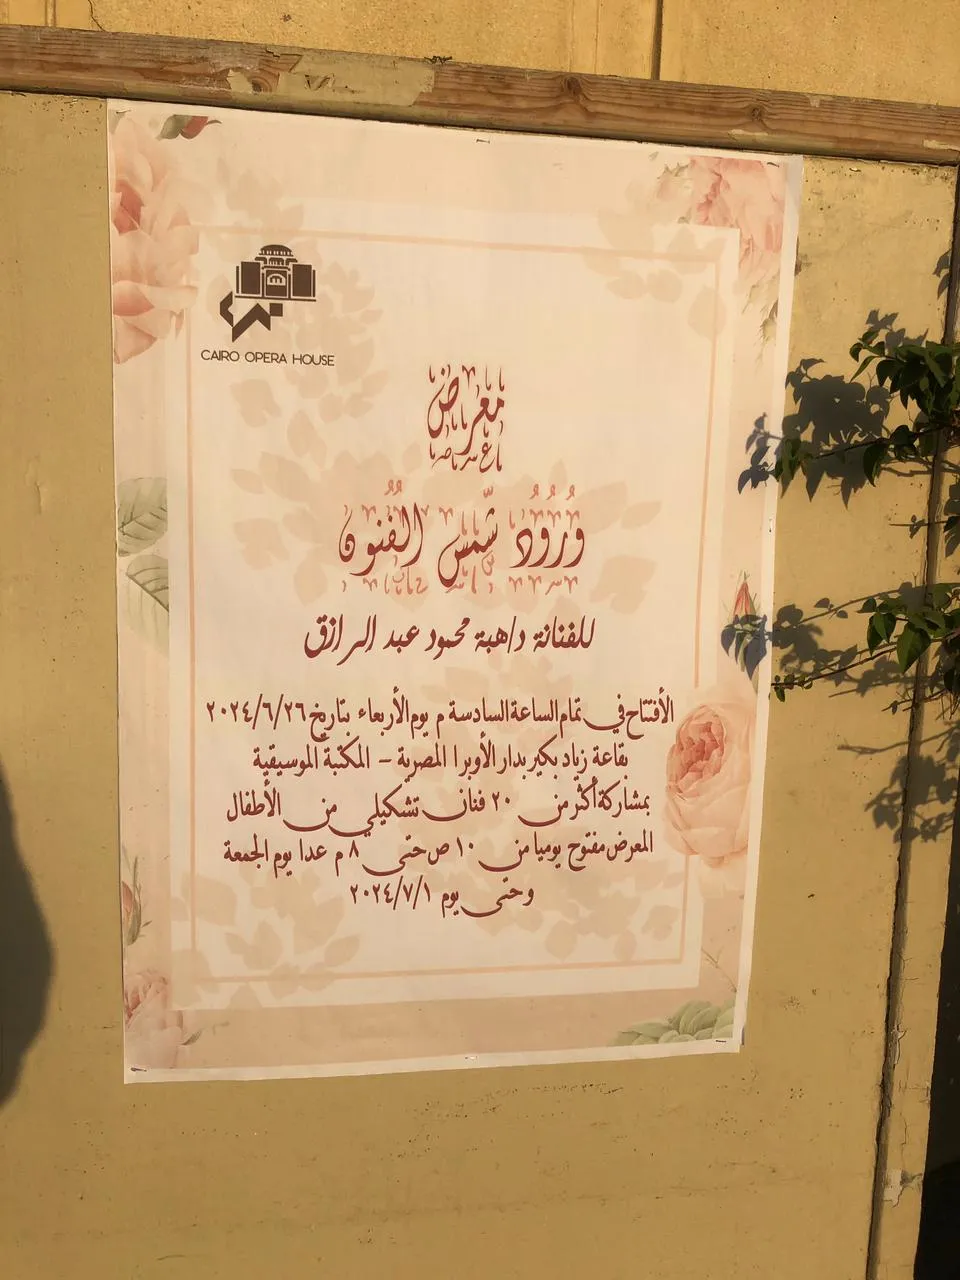 CAIRO OPERA HOUSE
معرض
وُرُوُد شّمس الُفنوُن
للفنانة د/هبة محمود عبد الرازق
الأفتتاح في تمام الساعة السادسة م يوم الأربعاء بتاريخ ٢٠٢٤/٦/٢٦
بقاعة زياد بكير بدار الأوبرا المصرية – المكتبة الموسيقية
بمشاركة أكثر من ٢٠ فنان تشكيلي من الأطفال
المعرض مفتوح يوميا من ١٠ ص حتى ٨ م عدا يوم الجمعة
وحتى يوم ٢٠٢٤/٧/١